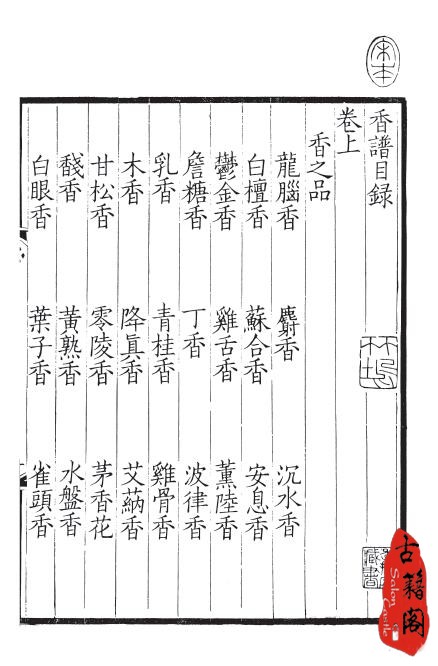 宋本
香譜目録
卷上
香之品
龍腦香 麝香 沉水香
白檀香 蘇合香 安息香
鬱金香 雞舌香 薰陸香
詹糖香 丁香 波律香
乳香 青桂香 雞骨香
木香 降眞香 艾蒳香
甘松香 零陵香 茅香花
馢香 黃熟香 水盤香
白眼香 葉子香 雀頭香
竹垞
藏書
古籍閣
Salon Castle